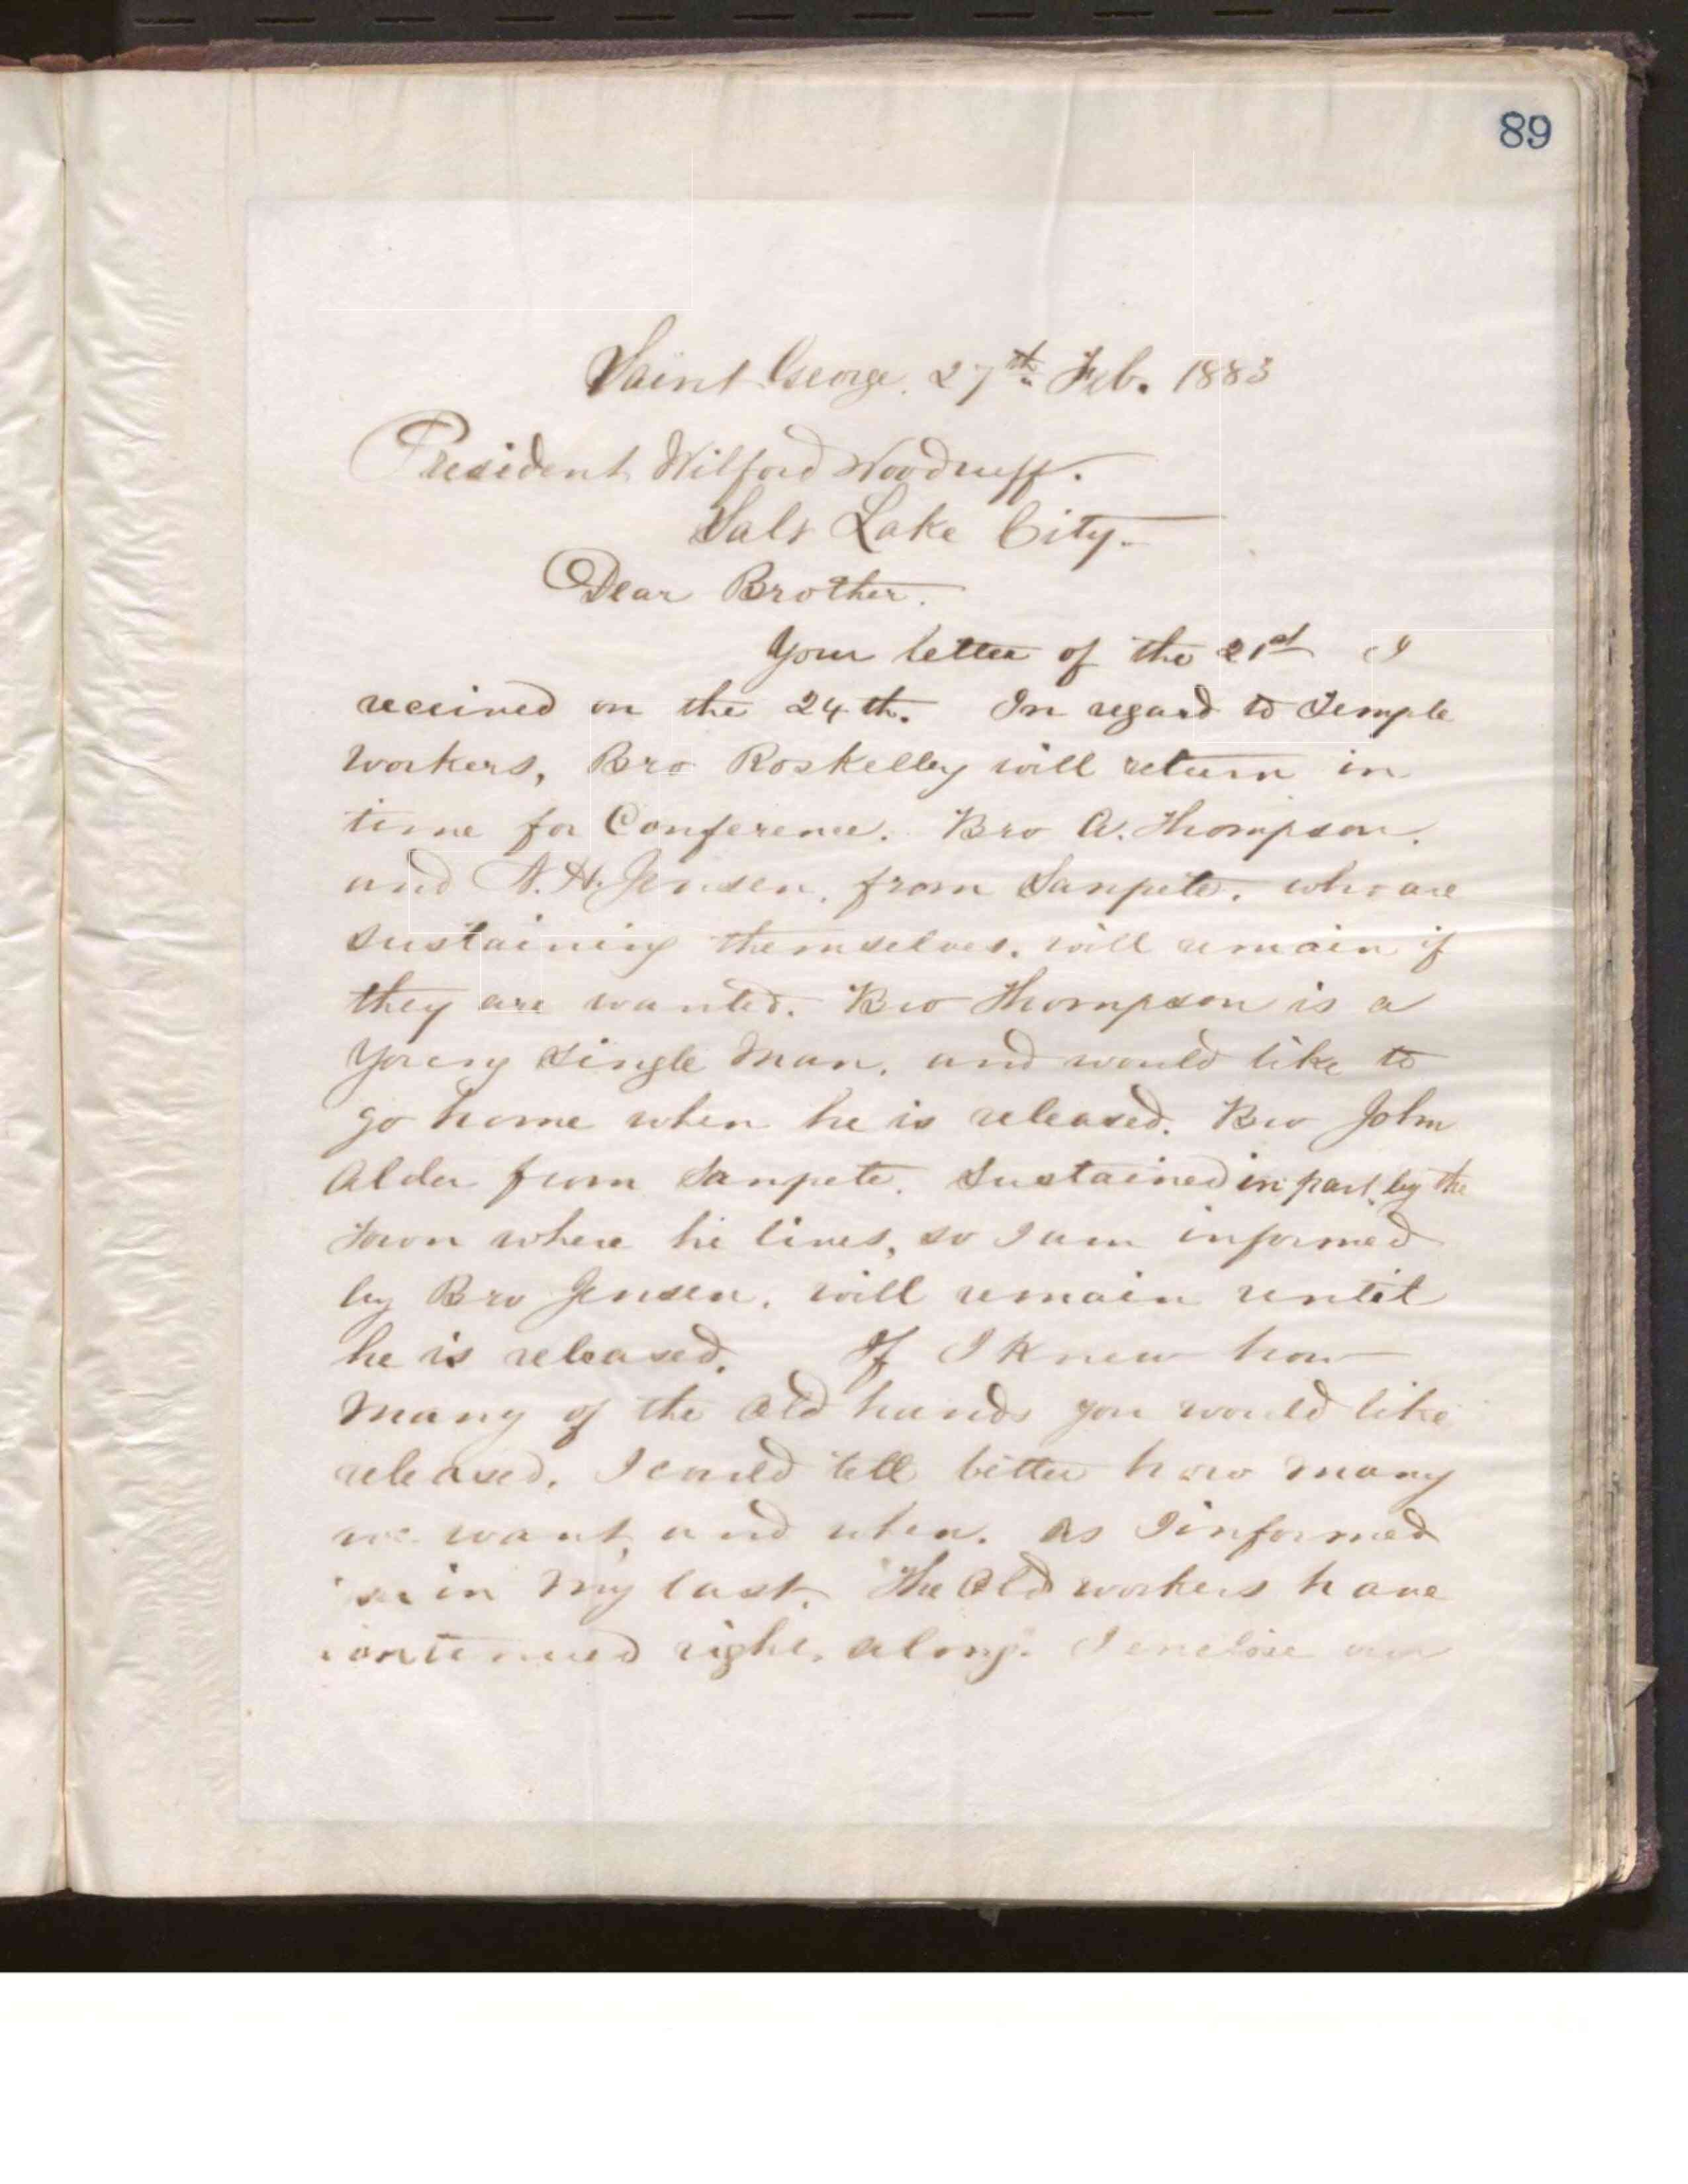 89
Saint George. 27th. Feb. 1883
President Wilford Woodruff.
Salt Lake City.
Dear Brother.
Your letter of the 21st I
received on the 24th. In regard to Temple
workers, Bro Roskelley will return in
time for Conference. Bro A. Thompson.
and N. H. Jensen, from Sanpete. who are
sustaining themselves. will remain if
they are wanted. Bro Thompson is a
Young single Man, and would like to
go home when he is released. Bro John
Alder from Sanpete. Sustained in part, by the
town where he lives, so I am informed
by Bro Jensen, will remain until
he is released. If I knew how
Many of the Old hands you would like
released. I could tell better how many
we want, and when. As I informed
in My last. The Old workers have
continued right, along. I enclose